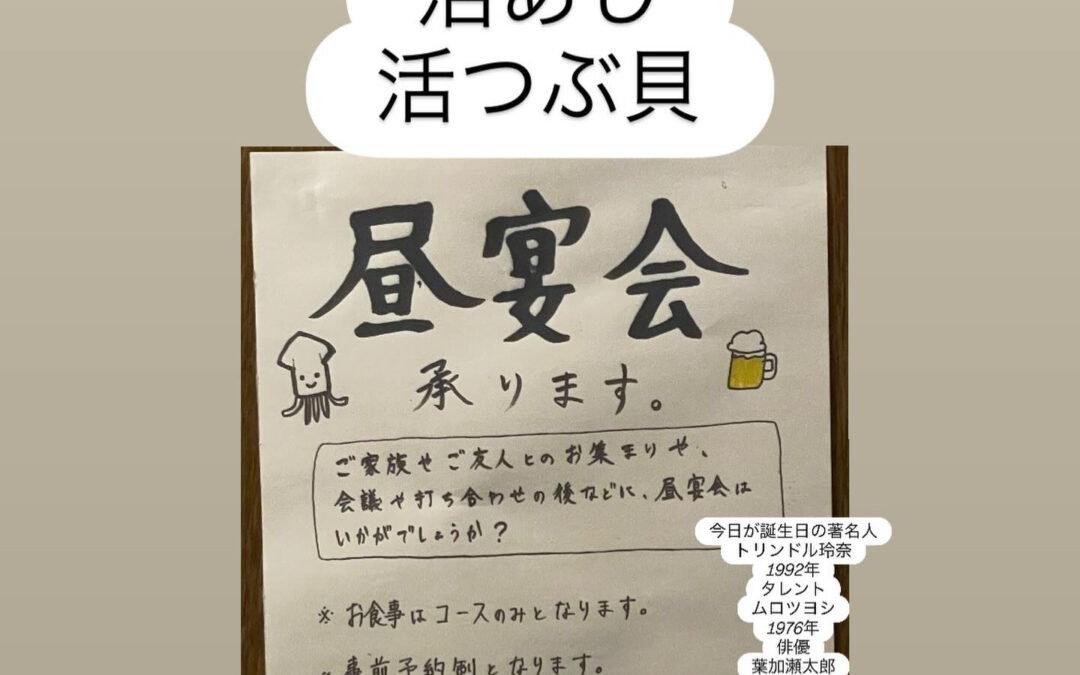 活あじ
活つぶ貝
昼宴会
承ります。
ご家族やご友人とのお集まりや、
会議や打ち合わせの後などに、昼宴会は
いかがでしょうか?
※お食事はコースのみとなります。
事前予約制となります。
今日が誕生日の著名人
トリンドル玲奈
1992年
タレント
ムロツヨシ
1976年
俳優
葉加瀬太郎